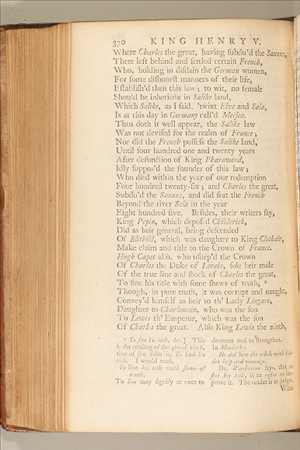 370 KING HENRY V.
Where Charles the great, having subdu'd the Saxons,
There left behind and settled certain French,
Who, holding in disdain the German women,
For some dishonest manners of their life,
Establish'd then this law; to wit, no female
Should be inheritrix in Salike land,
Which Salike, as I said, 'twixt Elve and Sala,
Is at this day in Germany call'd Meisen.
Thus doth it well appear, the Salike law
Was not devised for the realm of France;
Nor did the French possess the Salike land,
Until four hundred one and twenty years
After defunction of King Pharamond,
Idly suppos'd the founder of this law;
Who died within the year of our redemption
Four hundred twenty-six; and Charles the great,
Subdu'd the Saxons, and did seat the French
Beyond the river Sala in the year
Eight hundred five. Besides, their writers say,
King Pepin, which deposed Childerick,
Did as heir general, being descended
Of Blithild, which was daughter to King Clothair,
Make claim and title to the Crown of France.
Hugh Capet also, who usurp'd the Crown
Of Charles the Duke of Lorain, sole heir male
Of the true line and stock of Charles the great,
To fine his title with some shews of truth,
Though, in pure truth, it was corrupt and naught,
Convey'd himself as heir to th' Lady Lingare,
Daughter to Charlemain, who was the son
To Lewis th' Emperor, which was the son
Of Charles the great. Also King Lewis the ninth,
To fine his title, &c.] This
is the reading of the 4to of 1608,
that of the folio is, To find his
title. I would read,
To line his title with shews of
truth.
To line may signify at once to
decorate and to strengthen.
In Macbeth:
He did line the rebels with hid-
den help and vantage.
Dr. Warburton says, that to
fine his title, is to refine or im-
prove it. The reader is to judge.
Who